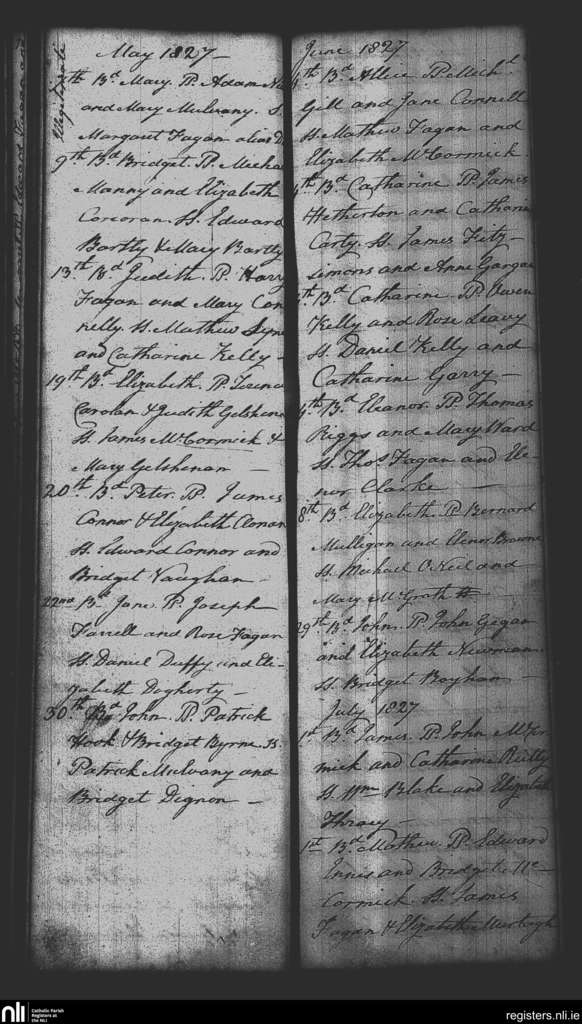 May 1827 —
Illegitimate
th Bd Mary. P. Adam
and Mary Mulvany. S.
Margaret Fagan alias
9th Bd Bridget. P. Micha
Manny and Elizabeth
Corcoran. S. Edward
Bartly & Mary Bartly
13th Bd Judith. P. Harry
Fagan and Mary Con
nelly. S. Mathew
and Catharine Kelly —
19th Bd Elizabeth. P. Terence
Carolan & Judith Gelshenan
S. James McCormick &
Mary Gelshenan —
20th Bd Peter. P. James
Connor & Elizabeth Clonan
S. Edward Connor and
Bridget Vaughan —
22nd Bd Jane. P. Joseph
Farrell and Rose Fagan
S. Daniel Duffy and Eli-
zabeth Dogherty —
30th Bd John. P. Patrick
Hook & Bridget Byrne. S.
Patrick Mulvany and
Bridget Dignon —
June 1827
4th Bd Allice P. Michl
Gill and Jane Connell
S. Mathew Fagan and
Elizabeth McCormick.
4th Bd Catharine P. James
Hetherton and Catharine
Carty. S. James Fitz-
simons and Anne Gargan
th Bd Catharine. P. Owen
Kelly and Rose Leavy
S. Daniel Kelly and
Catharine Garry —
4th Bd Eleanor. P. Thomas
Riggs and Mary Ward
S. Thos Fagan and Ele-
nor Clarke —
8th Bd Elizabeth. P. Bernard
Mulligan and Elenor Browne
S. Michael O'Neil and
Mary McGrath
29th Bd John. P. John Gegan
and Elizabeth Newman.
S. Bridget Boyhan —
July 1827
1st Bd James. P. John McCor
mick and Catharine Reilly
S. Wm Blake and Elizabeth
1st Bd Mathew. P. Edward
Innis and Bridget Mc-
Cormick S. James
Fagan & Elizabeth
nli
Catholic Parish
Registers at
the NLI
registers.nli.ie